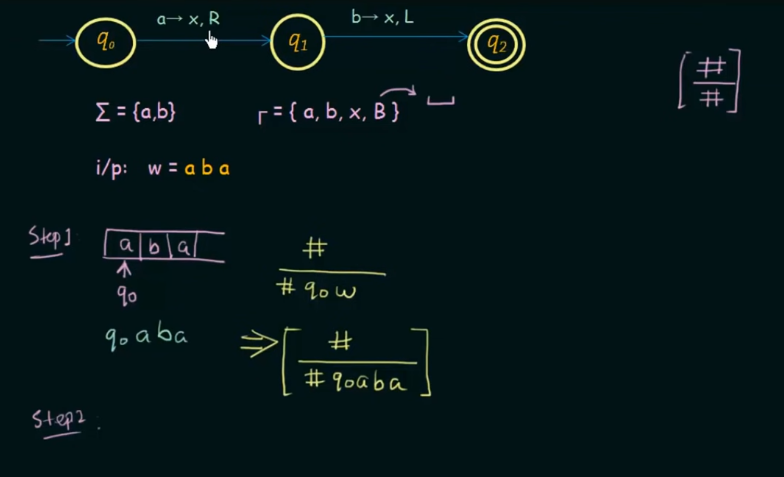 a→ x, R b→ x, L
q₀ q₁ q₂
[#/#]
Σ = {a,b} Γ = { a, b, x, B } ⎵
i/p: w = a b a
Step1 a b a
#
q₀ # q₀ w
q₀ a b a ⇒ [ #
# q₀ a b a ]
Step2 :